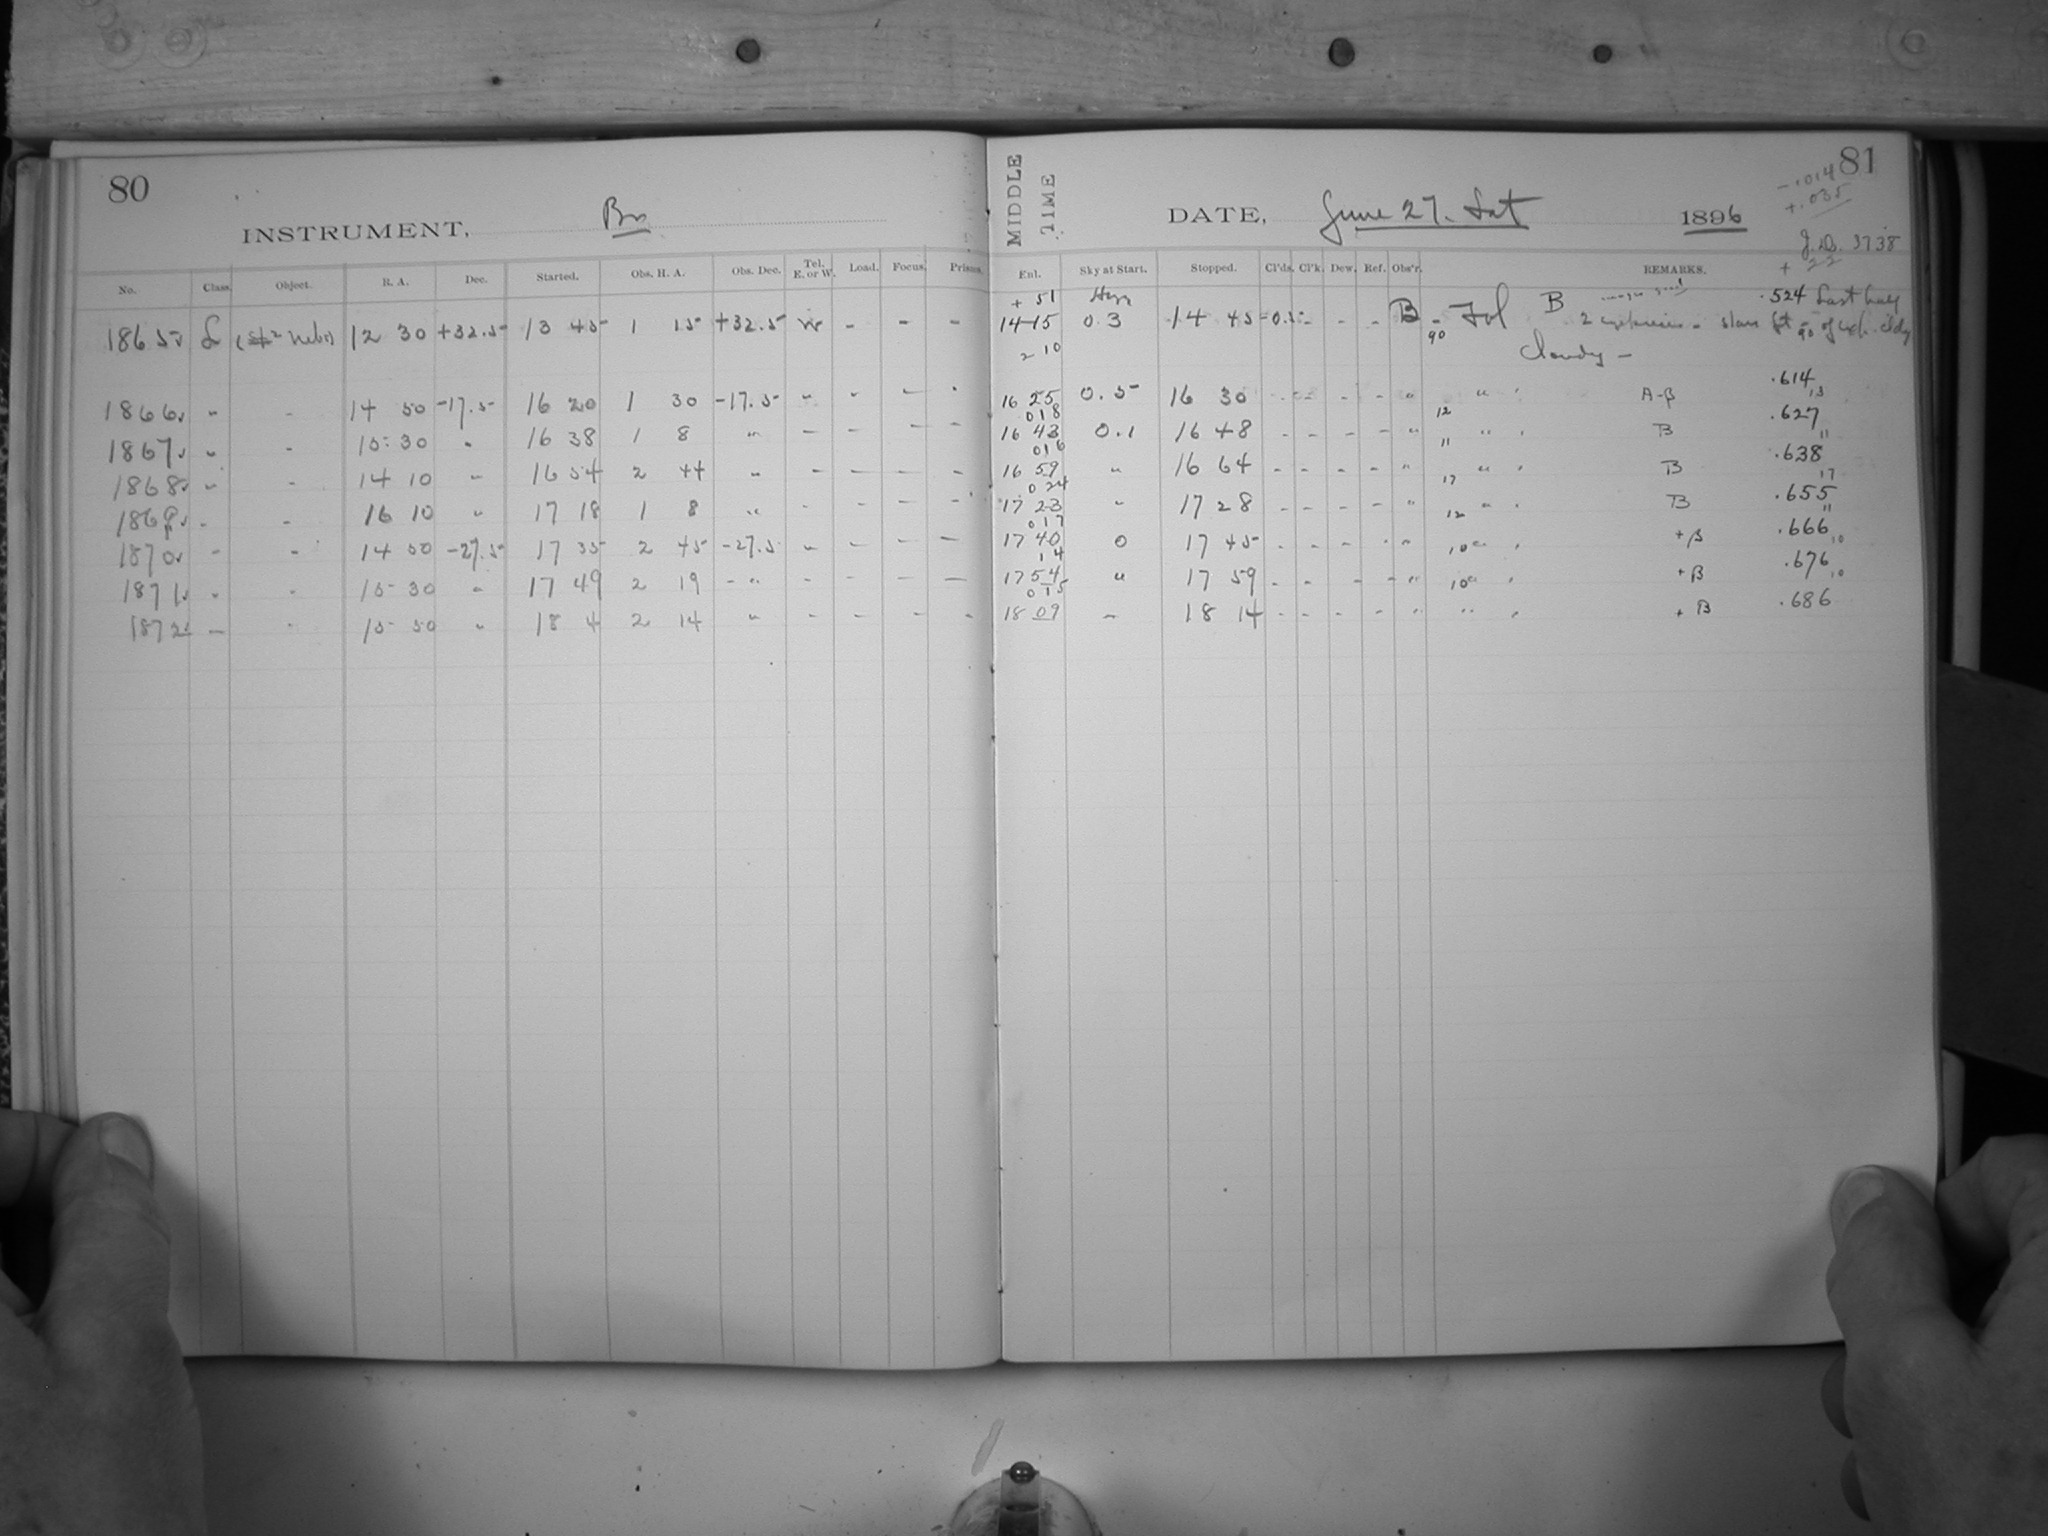 80
INSTRUMENT,
No. Class. Object. R. A. Dec. Started. Obs. H. A. Obs. Dec. Tel. E. or W. Load. Focus. Prisms.
1865 L 12 30 +32.5 13 45 1 15 +32.5 W - - -
1866 " - 14 50 -17.5 16 20 1 30 -17.5 " - - -
1867 " - 15 30 " 16 38 1 8 " - - - -
1868 " - 14 10 " 16 54 2 44 " - - - -
1869 " - 16 10 " 17 18 1 8 " - - - -
1870 " - 14 50 -27.5 17 35 2 45 -27.5 " - - -
1871 " - 15 30 " 17 49 2 19 " - - - -
1872 " - 15 50 " 18 4 2 14 " - - - -
MIDDLE TIME
81
-.014
+.035
DATE, June 27. Sat 1896
J.D. 3738
+ 22
Enl. Sky at Start. Stopped. Cl'ds. Cl'k. Dew. Ref. Obs'r. REMARKS.
+ 51 .524 Last half
14 15 0.3 14 45 0.5 - - - B 90 Fol B
2 10 Cloudy -
16 25 0.5 16 30 - - - - " " A-B .614 13
018
16 43 0.1 16 48 - - - - " 12 " B .627 11
016
16 59 " 16 64 - - - - " 11 " B .638 17
024
17 23 " 17 28 - - - - " 17 " B .655 11
017
17 40 0 17 45 - - - - " 12 " +B .666 10
14
17 54 " 17 59 - - - - " 10 " +B .676 10
015
18 09 " 18 14 - - - - " 10 " +B .686